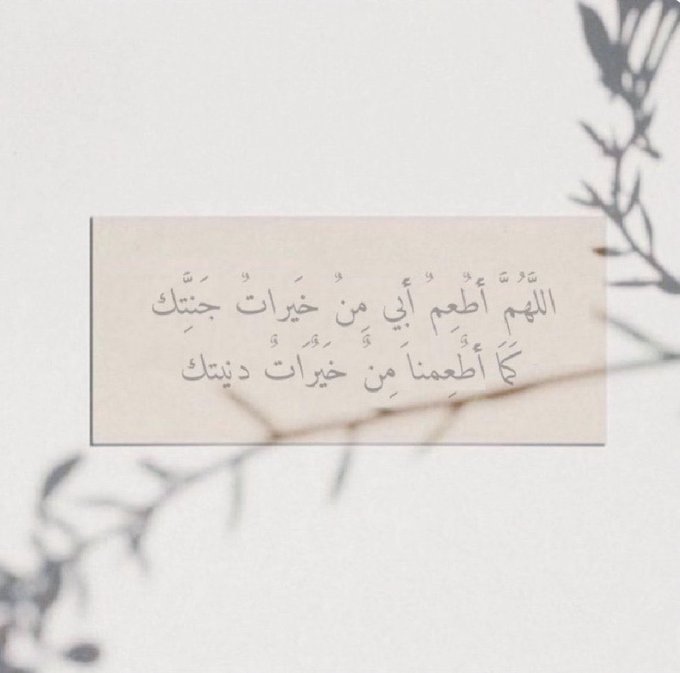 اللَّهُمَّ أطْعِمْ أبي مِنْ خَيراتْ جَنَّتِك
كَمَا أطْعِمناَ مِنْ خَيْرَاتْ دنيتك